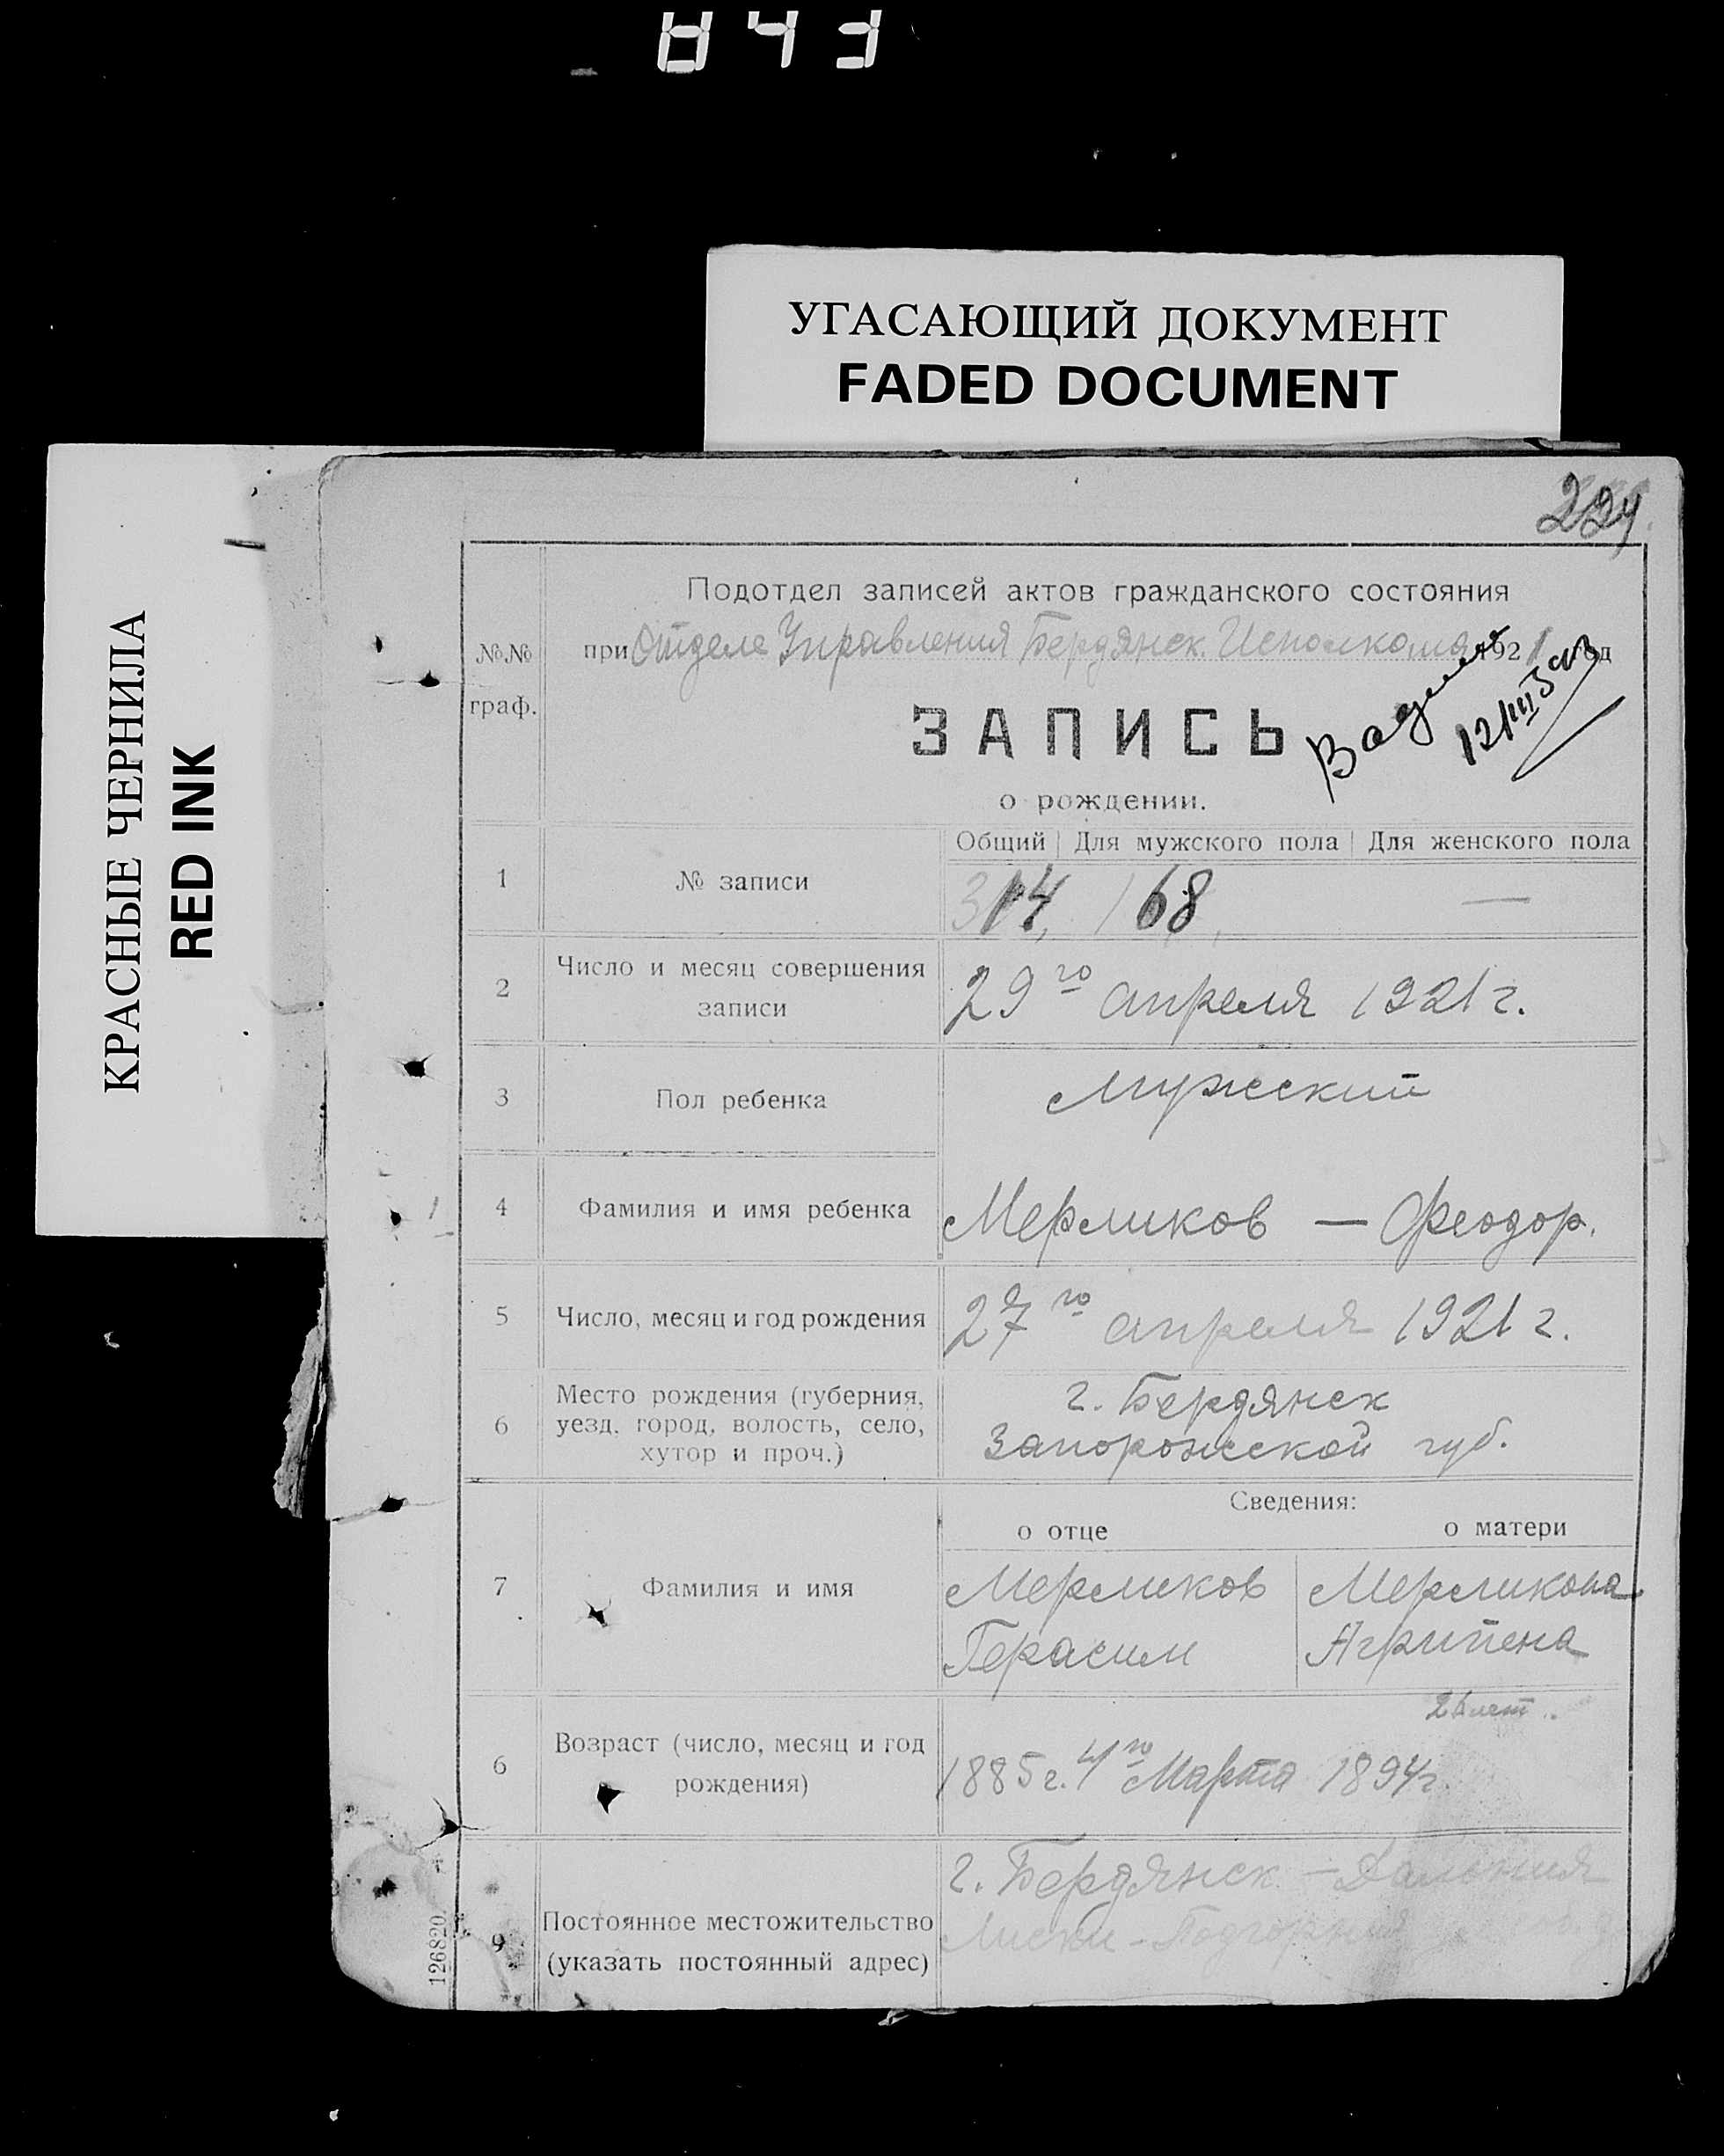 843
УГАСАЮЩИЙ ДОКУМЕНТ
FADED DOCUMENT
КРАСНЫЕ ЧЕРНИЛА
RED INK
224
№№ граф.
Подотдел записей актов гражданского состояния
при Отделе Управления Бердянск. Исполкома 1921 год
ЗАПИСЬ
о рождении.
Общий Для мужского пола Для женского пола
1 № записи 314, 168, —
2 Число и месяц совершения
записи
29го апреля 1921 г.
3 Пол ребенка Мужский
4 Фамилия и имя ребенка Мерликов — Феодор.
5 Число, месяц и год рождения 27го апреля 1921 г.
6 Место рождения (губерния,
уезд, город, волость, село,
хутор и проч.)
г. Бердянск
Запорожской губ.
Сведения:
о отце о матери
7 Фамилия и имя
Мерликов Мерликова
Герасим Агрипена
6 Возраст (число, месяц и год
рождения)
26 лет
1885 г. 4го Марта 1894 г.
9 Постоянное местожительство
(указать постоянный адрес)
г. Бердянск —
Лиски -
126820